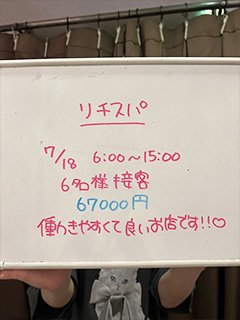 リチスパ
7/18 6:00～15:00
6名様接客
67000円
働きやすくて良いお店です!!♡